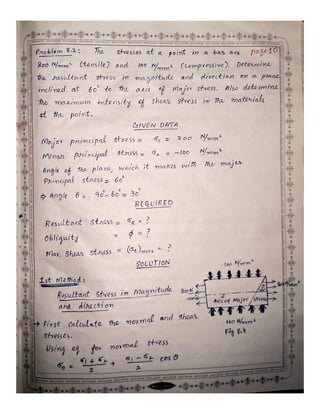 page 10
Problem 8.2: The stresses at a point in a bar are
200 N/mm² (tensile) and 100 N/mm² (compressive). Determine
the resultant stress in magnitude and direction on a plane
inclined at 60° to the axis of Major stress. Also determine
the maximum intensity of shear stress in the materials
at the point.
GIVEN DATA
Major principal stress = σ₁ = 200 N/mm²
Minor principal stress = σ₂ = -100 N/mm²
Angle of the plane, which it makes with the major
Principal stress = 60°
⇒ Angle θ = 90° - 60° = 30°
REQUIRED
Resultant stress = σR = ?
Obliquity = φ = ?
Max. Shear stress = (σt)max = ?
SOLUTION
1st Method:
Resultant Stress in Magnitude
and direction
→ First calculate the normal and shear
stresses.
Using eq for normal stress
σn = σ₁ + σ₂ / 2 + σ₁ - σ₂ / 2 cos θ
100 N/mm²
200N
Axis of Major stress
100 N/mm²
Fig 8.4